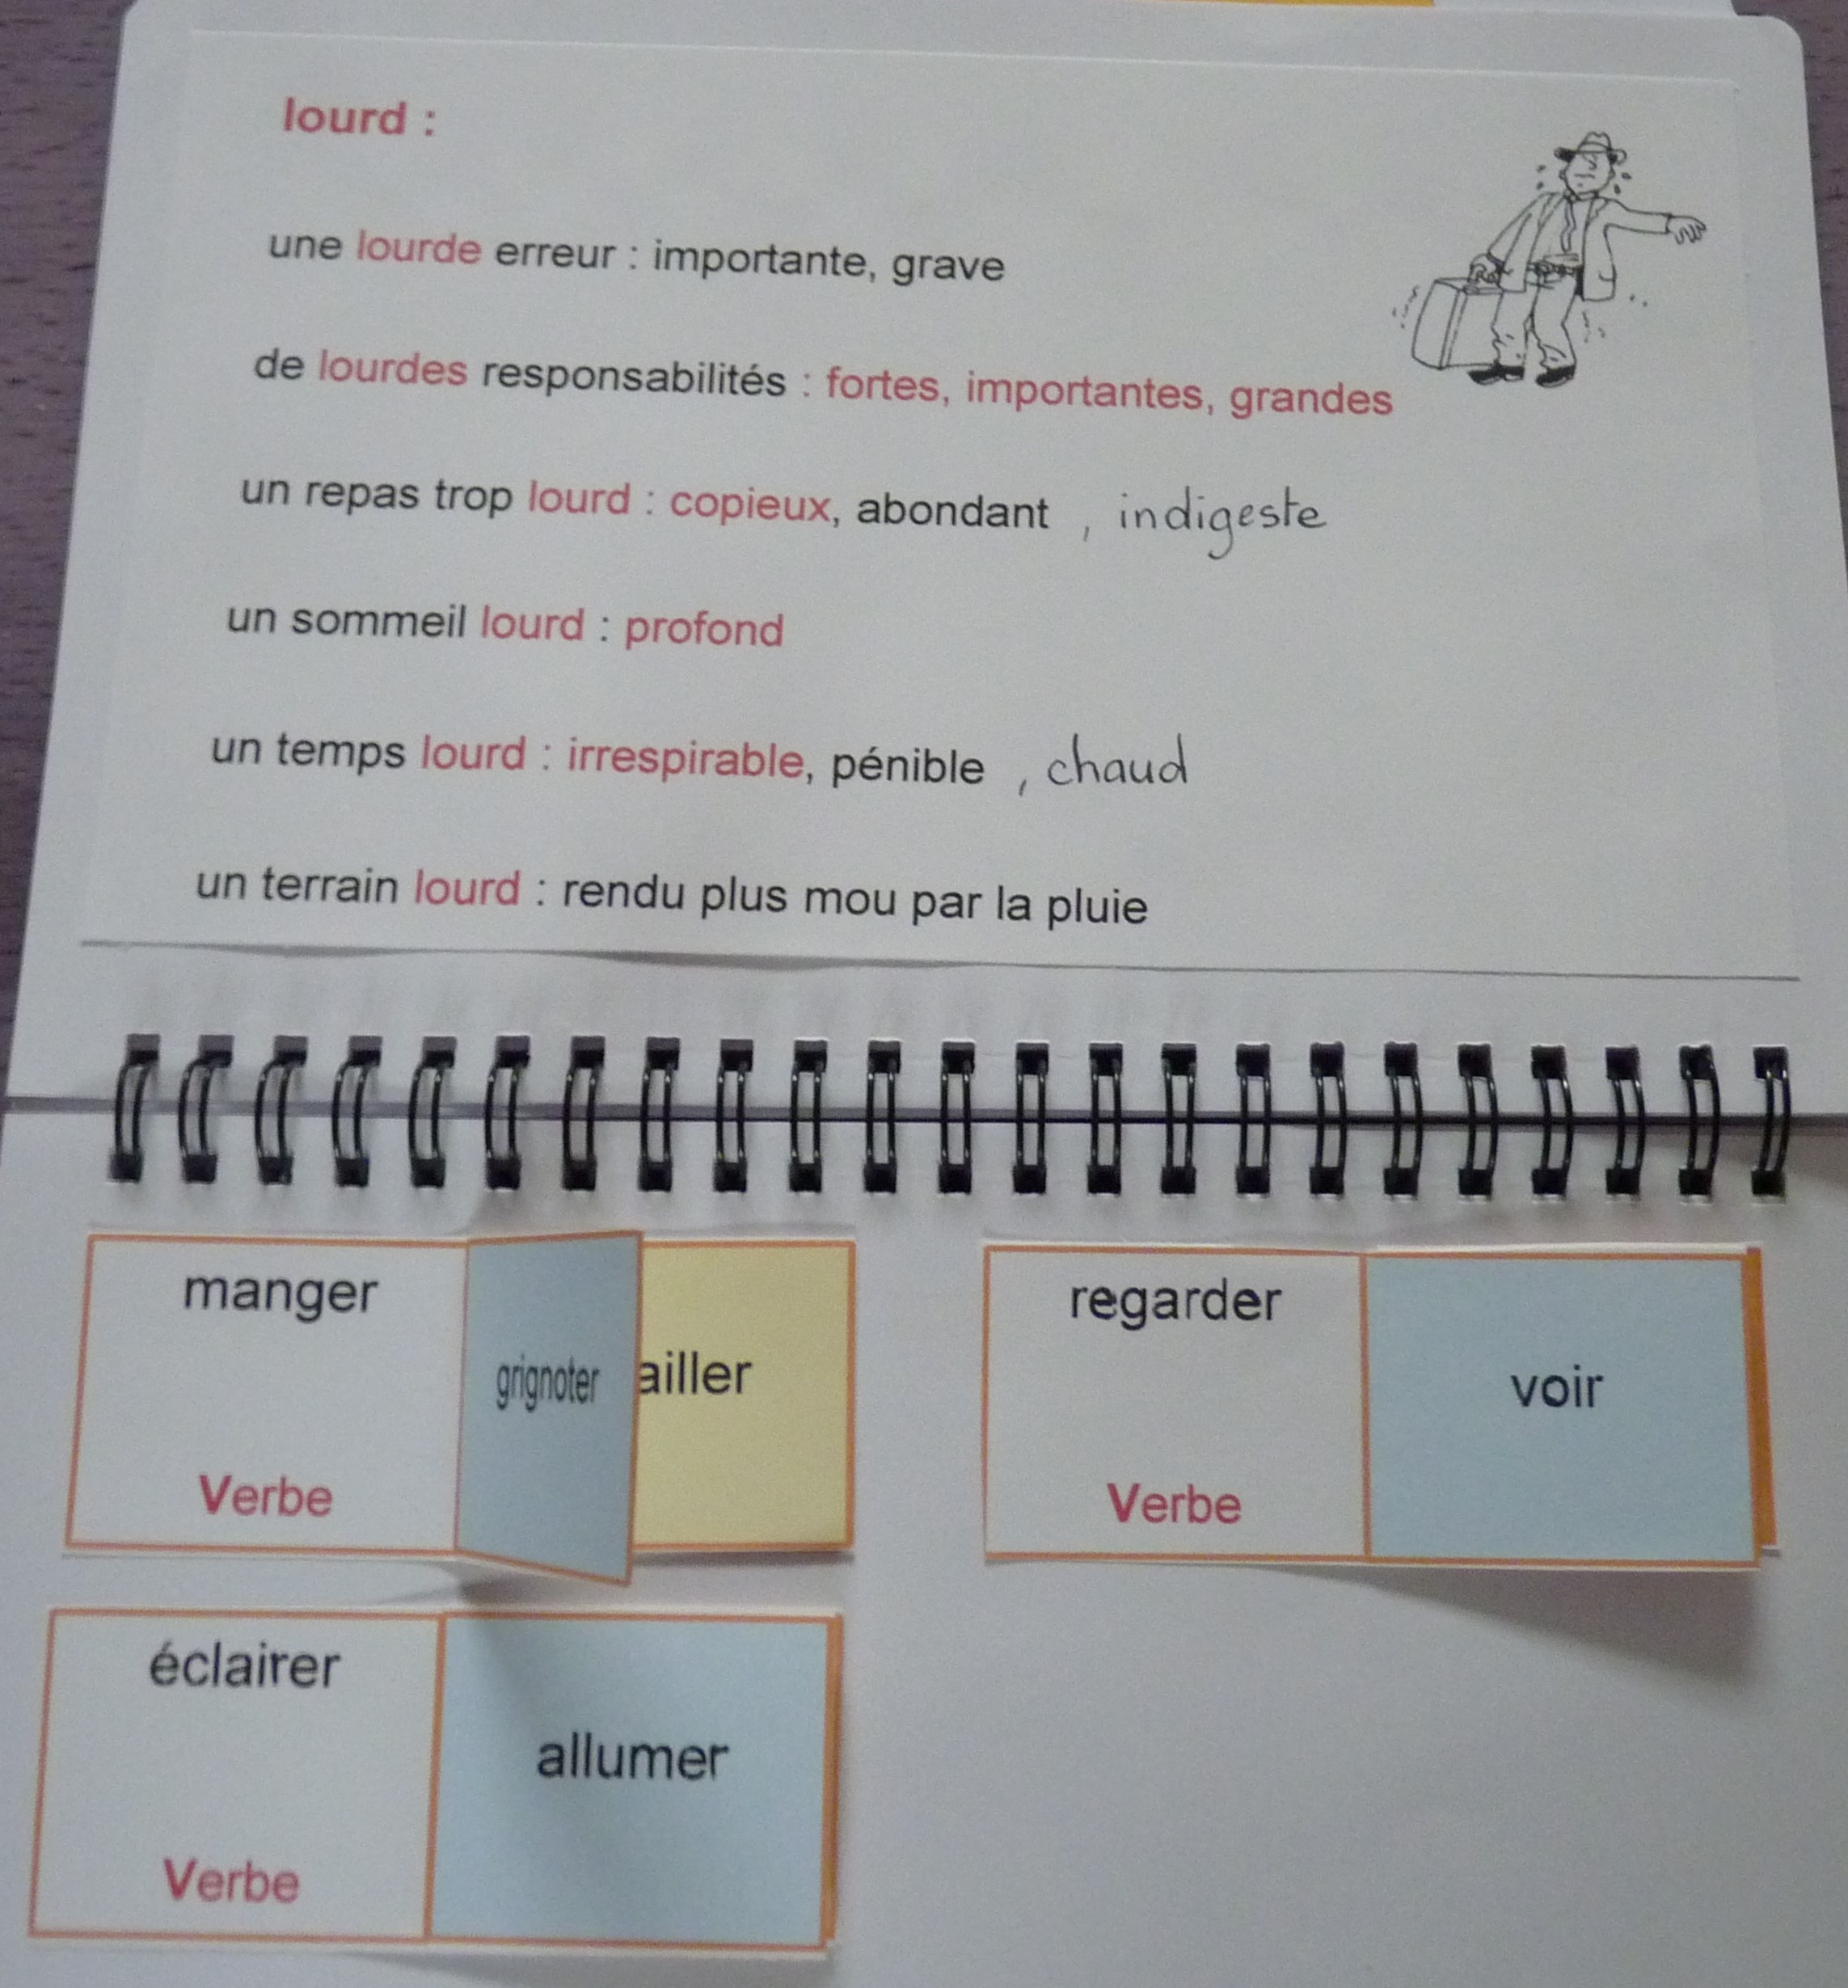 lourd :
une lourde erreur : importante, grave
de lourdes responsabilités : fortes, importantes, grandes
un repas trop lourd : copieux, abondant , indigeste
un sommeil lourd : profond
un temps lourd : irrespirable, pénible , chaud
un terrain lourd : rendu plus mou par la pluie
manger
grignoter
ailler
Verbe
regarder
voir
Verbe
éclairer
allumer
Verbe